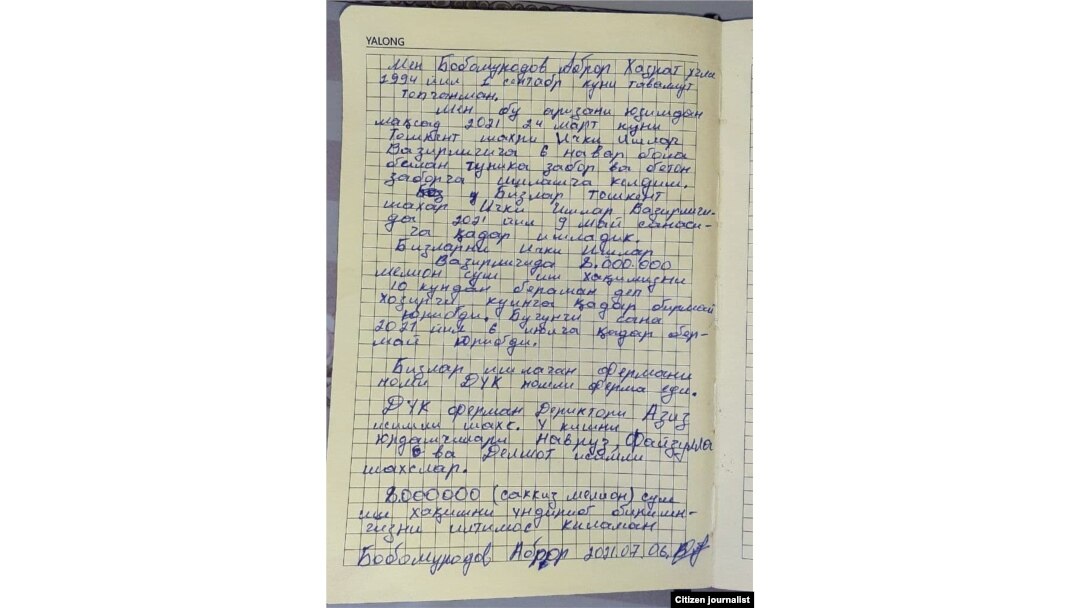 YALONG
Мен Бобомуродов Аброр Хазрат ўғли
1994 йил 1 сентабр куни таваллут
топганман.
Мен бу аризани юзимдан
мақсад 2021 24 март куни
Тошкент шахри Ички Ишлар
Вазирлигига 6 навар бола
билан туника забор ва бетон
заборга ишлашга келдим.
Бизлар Тошкент
шахар Ички Ишлар Вазирлиги-
да 2021 йил 9 май санаси-
га қадар ишладик.
Бизларни Ички Ишлар
Вазирлигида 8.000.000
мелион сум иш хақимизни
10 кундан бераман деп
хозирги кунга қадар бермай
юрибди. Бугунги сана
2021 йил 6 июлга қадар бер-
май юрибди.
Бизлар ишлаган фермани
номи ДУК номли ферма еди.
ДУК ферман Дериктори Азиз
исимли шахс. У кишни
юрдамчилари Навруз, Файзулла
ва Делшот исамли
шахслар.
8.000000 (саккиз мелион) сум
иш хақимни ундириб беришин-
гизни илтимос киламан
Бобомуродов Аброр 2021.07.06.
Citizen journalist